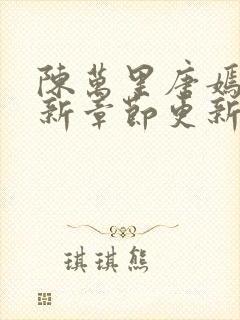 陳萬里唐嫣
新章節更新
琪琪熊